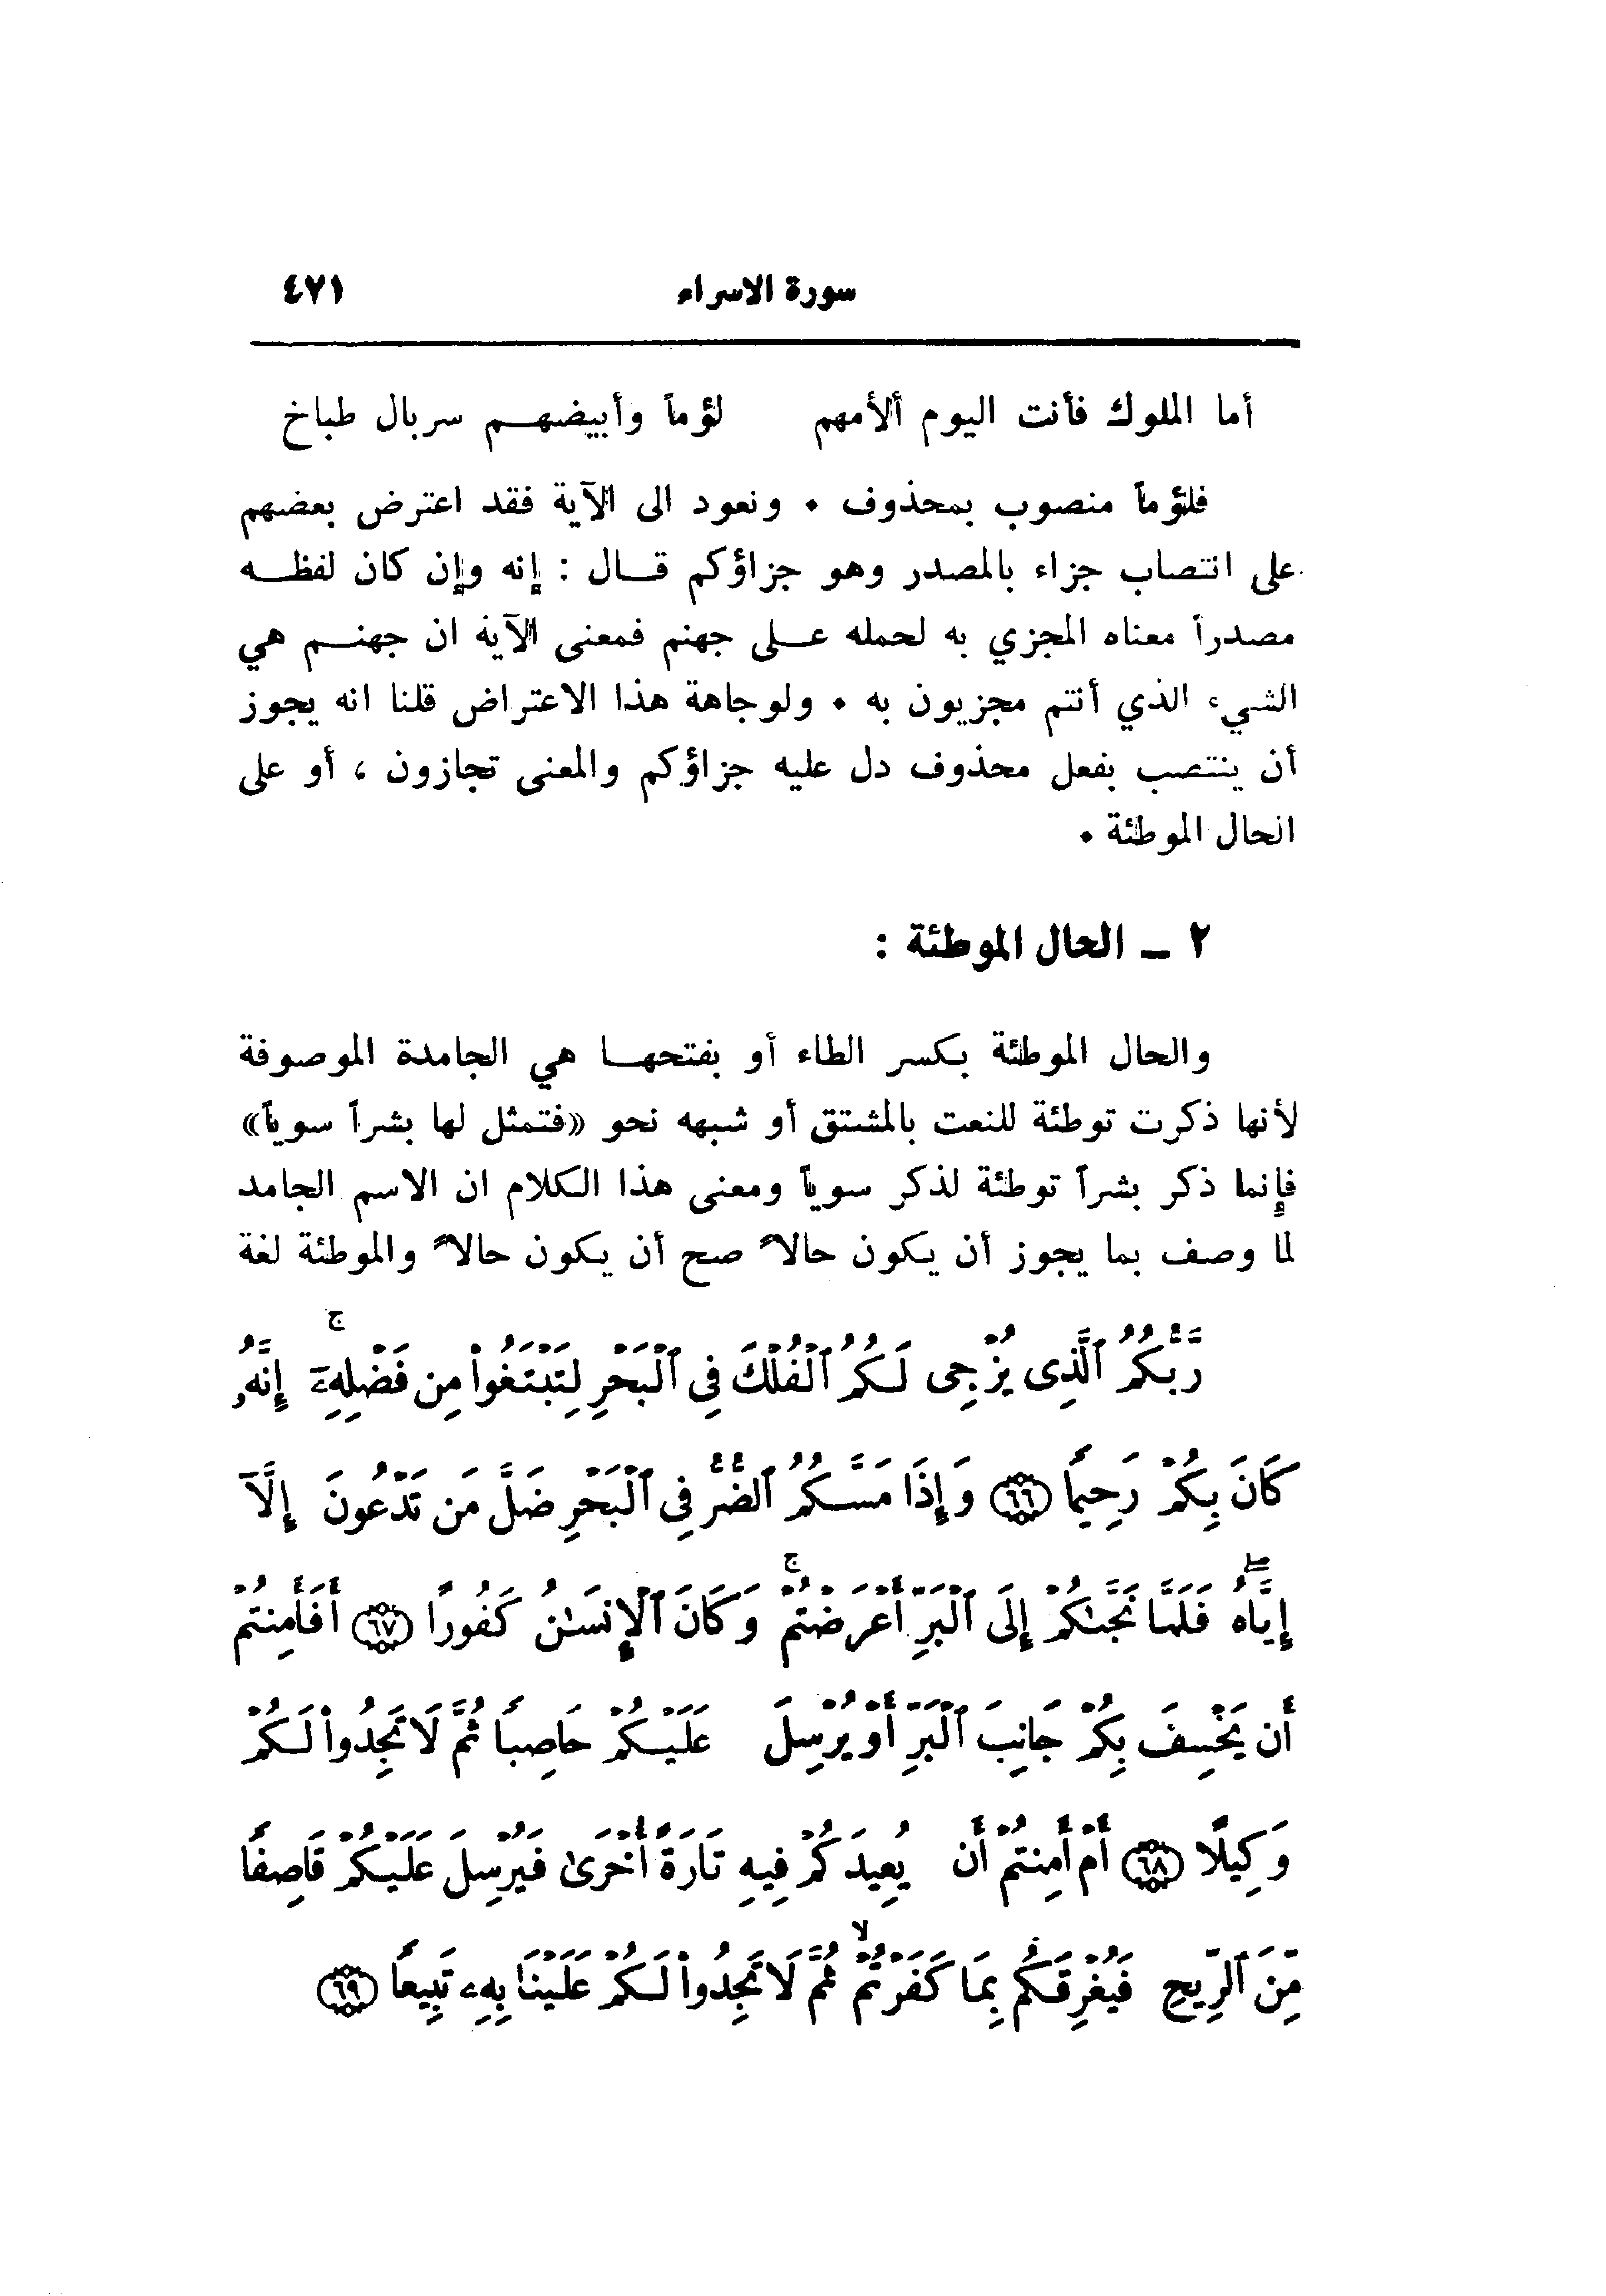 سورة الاسراء ٤٧١
أما الملوك فأنت اليوم ألأمهم لؤماً وأبيضهم سربال طباخ
فلؤماً منصوب بمحذوف . ونعود الى الآية فقد اعترض بعضهم
على انتصاب جزاء بالمصدر وهو جزاؤكم قال : إنه وإن كان لفظه
مصدراً معناه المجزي به لحمله على جهنم فمعنى الآية ان جهنم هي
الشيء الذي أنتم مجزيون به . ولوجاهة هذا الاعتراض قلنا انه يجوز
أن ينتصب بفعل محذوف دل عليه جزاؤكم والمعنى تجازون ، أو على
الحال الموطئة .
٢ ــ الحال الموطئة :
والحال الموطئة بكسر الطاء أو بفتحها هي الجامدة الموصوفة
لأنها ذكرت توطئة للنعت بالمشتق أو شبهه نحو «فتمثل لها بشراً سوياً»
فإنما ذكر بشراً توطئة لذكر سوياً ومعنى هذا الكلام ان الاسم الجامد
لما وصف بما يجوز أن يكون حالاً صح أن يكون حالاً والموطئة لغة
رَّبُّكُمُ ٱلَّذِى يُزْجِى لَكُمُ ٱلْفُلْكَ فِى ٱلْبَحْرِ لِتَبْتَغُوا۟ مِن فَضْلِهِۦٓ ۚ إِنَّهُۥ
كَانَ بِكُمْ رَحِيمًا ﴿٦٦﴾ وَإِذَا مَسَّكُمُ ٱلضُّرُّ فِى ٱلْبَحْرِ ضَلَّ مَن تَدْعُونَ إِلَّآ
إِيَّاهُ ۖ فَلَمَّا نَجَّىٰكُمْ إِلَى ٱلْبَرِّ أَعْرَضْتُمْ ۚ وَكَانَ ٱلْإِنسَٰنُ كَفُورًا ﴿٦٧﴾ أَفَأَمِنتُمْ
أَن يَخْسِفَ بِكُمْ جَانِبَ ٱلْبَرِّ أَوْ يُرْسِلَ عَلَيْكُمْ حَاصِبًا ثُمَّ لَا تَجِدُوا۟ لَكُمْ
وَكِيلًا ﴿٦٨﴾ أَمْ أَمِنتُمْ أَن يُعِيدَكُمْ فِيهِ تَارَةً أُخْرَىٰ فَيُرْسِلَ عَلَيْكُمْ قَاصِفًا
مِّنَ ٱلرِّيحِ فَيُغْرِقَكُم بِمَا كَفَرْتُمْ ۙ ثُمَّ لَا تَجِدُوا۟ لَكُمْ عَلَيْنَا بِهِۦ تَبِيعًا ﴿٦٩﴾